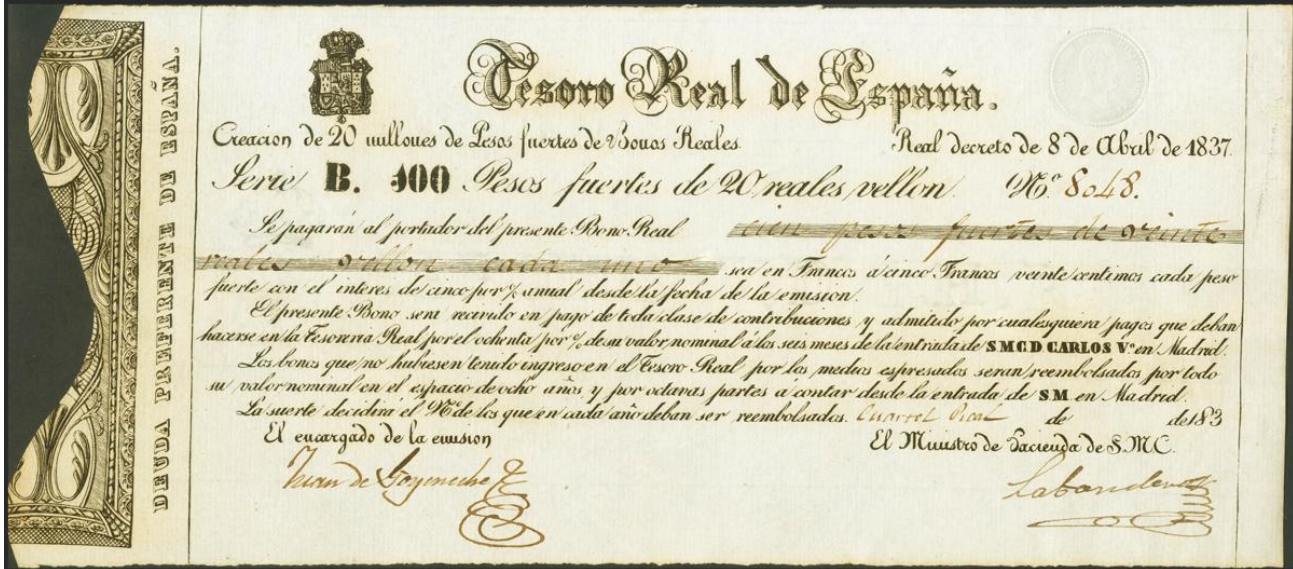 DEUDA PREFERENTE DE ESPAÑA.
Tesoro Real de España.
Creacion de 20 millones de Pesos fuertes de Bonos Reales. Real decreto de 8 de Abril de 1837.
Serie B. 100 Pesos fuertes de 20 reales vellon. Nº 8048.
Se pagarán al portador del presente Bono Real cien pesos fuertes de veinte
reales vellon cada uno sea en Francos á cinco Francos veinte centimos cada peso
fuerte con el interes de cinco por % anual desde la fecha de la emision.
El presente Bono sera recivido en pago de toda clase de contribuciones y admitido por cualesquiera pagos que deban
hacerse en la Tesoreria Real por el ochenta por % de su valor nominal á los seis meses de la entrada de S M C D CARLOS Vº en Madrid.
Los bonos que no hubiesen tenido ingreso en el Tesoro Real por los medios espresados seran reembolsados por todo
su valor nominal en el espacio de ocho años y por octavas partes á contar desde la entrada de S M en Madrid.
La suerte decidirá el Nº de los que en cada año deban ser reembolsados. Cuartel Real de de 183
El encargado de la emision El Ministro de Hacienda de S.M.C.
Juan de Goyeneche Labandero